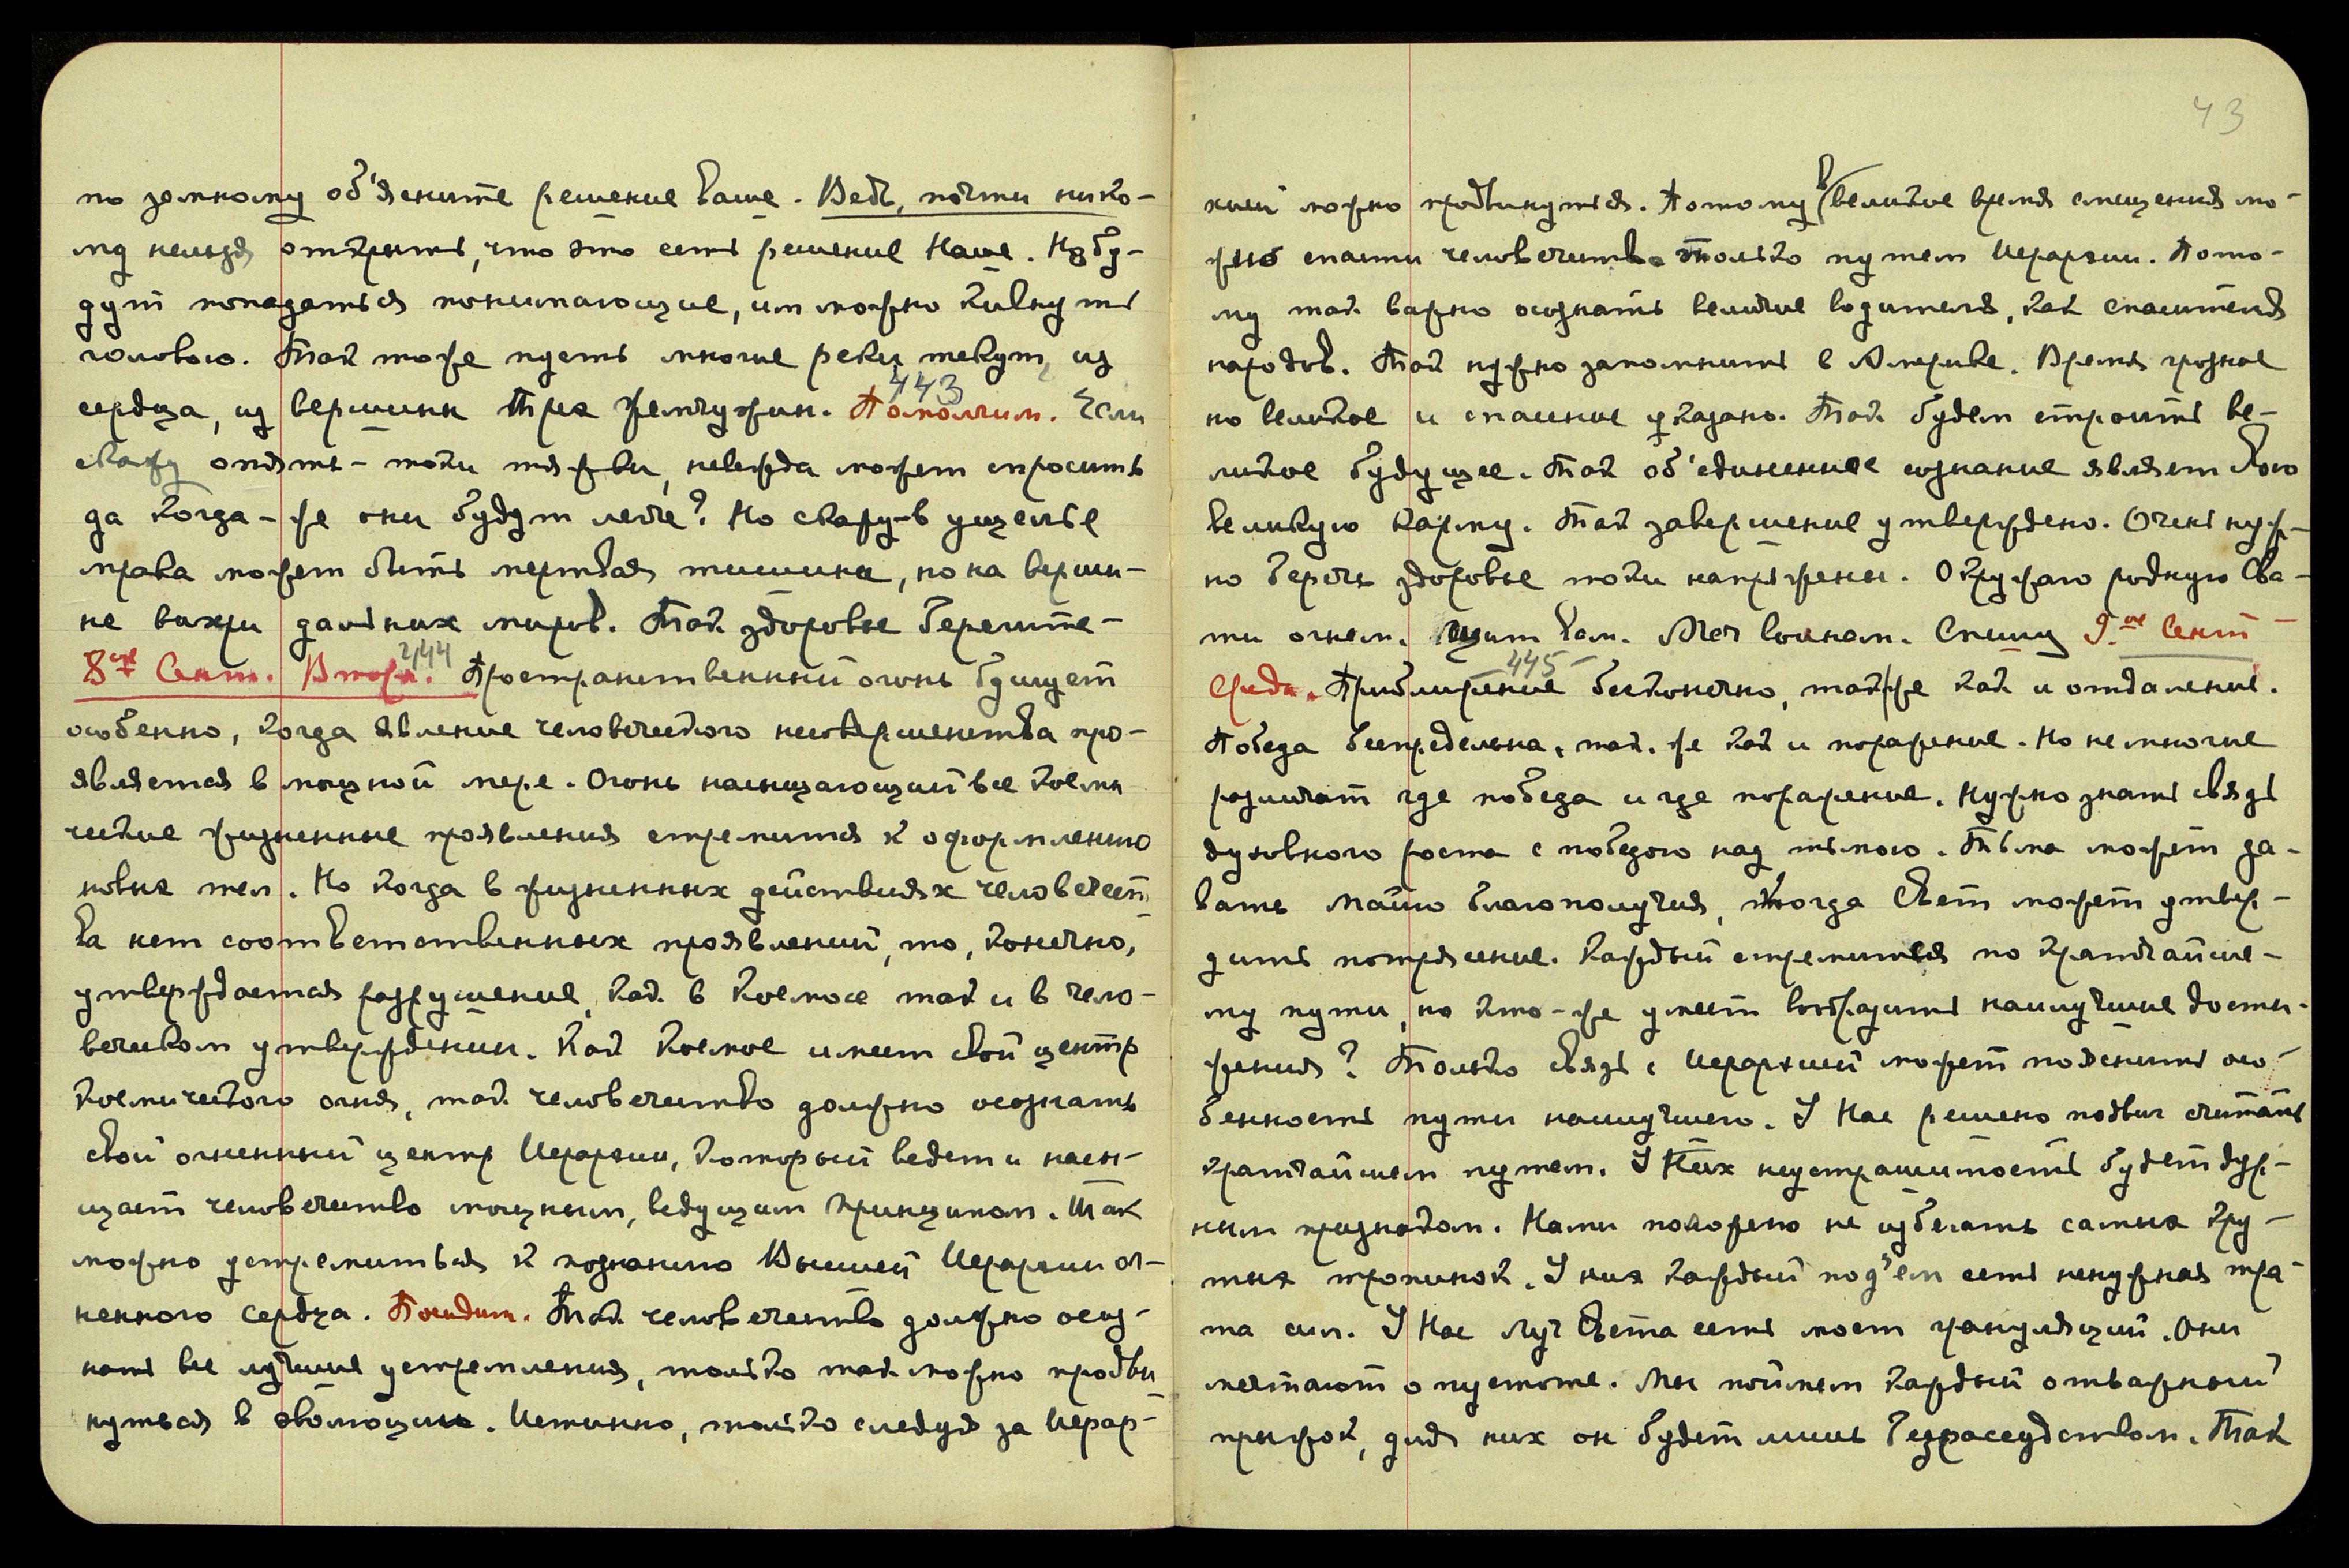 по земному об'ясните решение ваше. Ведь, почти нико-
му нельзя открыть, что это есть решение Наше. Но бу-
дут попадаться понимающие, им можно кивнуть
головою. Так тоже пусть многие реки текут, из
443
сердца, из вершин трех жемчужин. Помолчим. Если
скажу опять - токи тяжки, невежда может спросить
да когда-же они будут легче? Но скажу-в ущелье
мрака может быть мертвая тишина, но на верши-
не вихри дальних миров. Так здоровье берегите-
244
8ое Сент. Вторн. Пространственный огонь бушует
особенно, когда явление человеческого несовершенства про-
является в мощной мере. Огонь насыщающий все косми
ческие жизненные проявления стремится к оформлению
новых тел. Но когда в жизненных действиях человечест
ва нет соответственных проявлений, то, конечно,
утверждается разрушение, как в Космосе так и в чело-
веческом утверждении. Как Космос имеет свой центр
космического огня, так человечество должно осознать
свой огненный центр Иерархии, который ведет и насы-
щает человечество мощным, ведущим принципом. Так
можно устремиться к познанию Высшей Иерархии ог-
ненного сердца. Посидим. Так человечество должно осоз-
нать все лучшие устремления, только так можно продви
нуться в эволюции. Истинно, только следуя за Иерар-
43
хией можно продвинуться. Потому в великое время смещения мо-
жно спасти человечество только путем Иерархии. Пото-
му так важно осознать величие водителя, как спасителя
народов. Так нужно запомнить в Америке. Время грозное
но великое и спасение указано. Так будем строить ве-
ликое будущее. Так об'единенное сознание являет свою
великую карму. Так завершение утверждено. Очень нуж-
но беречь здоровье токи напряжены. Окружаю родную Сва-
ти огнем. Щит вам. Меч воинам. Спешу 9-ое Сент
445
Среда. Приближение бесконечно, также как и отдаление.
Победа беспредельна, так-же как и поражение. Но не многие
различат где победа и где поражение. Нужно знать связь
духовного роста с победою над тьмою. Тьма может да-
вать майю благополучия, когда Свет может утвер-
дить потрясение. Каждый стремится по кратчайше-
му пути, но кто-же умеет вообразить наилучшие дости-
жения? Только связь с Иерархией может пояснить осо-
бенность пути наилучшего. У Нас решено подвиг считать
кратчайшем путем. У Них неустрашимость будет дур-
ным признаком. Нами положено не избегать самых кру-
тых тропинок. У них каждый под'ем есть ненужная тра-
та сил. У Нас луч Света есть мост грануляций. Они
мечтают о пустоте. Мы поймем каждый отважный
прыжок, для них он будет лишь безрассудством. Так